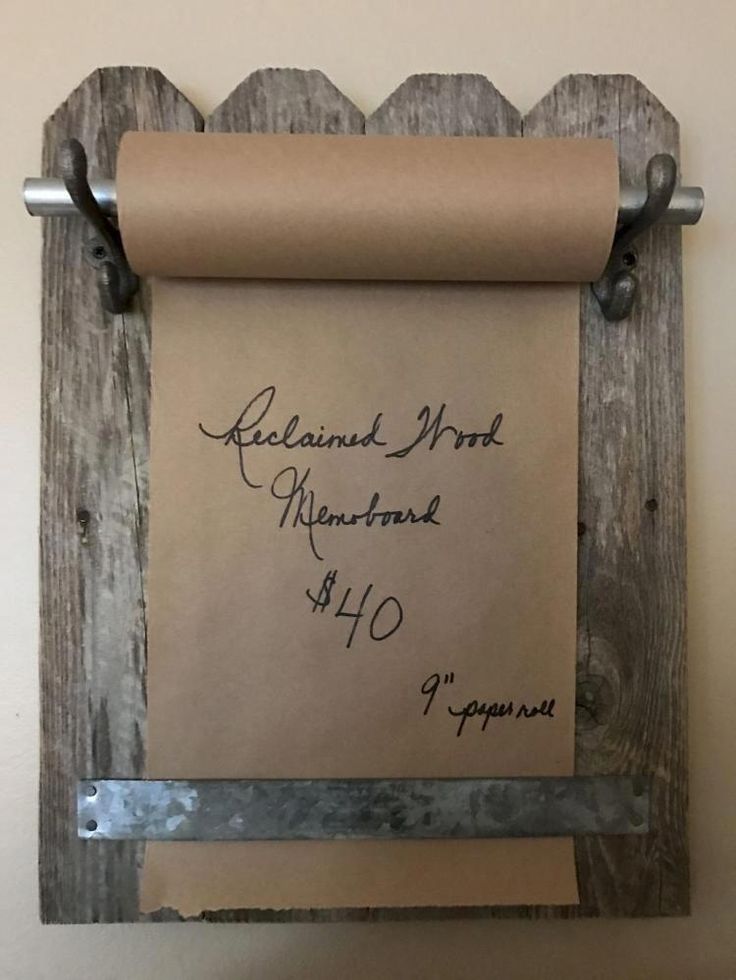 Reclaimed Wood
Memoboard
$40
9" paper roll